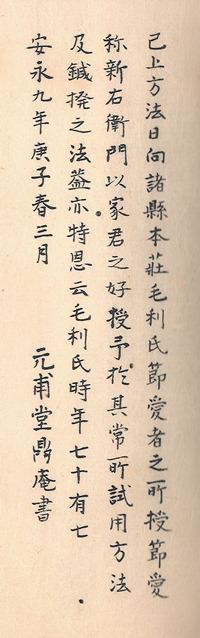 已上方法日向諸縣本莊毛利氏節愛者之所授節愛
称新右衛門以家君之好授予於其常所試用方法
及鍼揆之法蓋亦特恩云毛利氏時年七十有七
安永九年庚子春三月　元甫堂鼎庵書